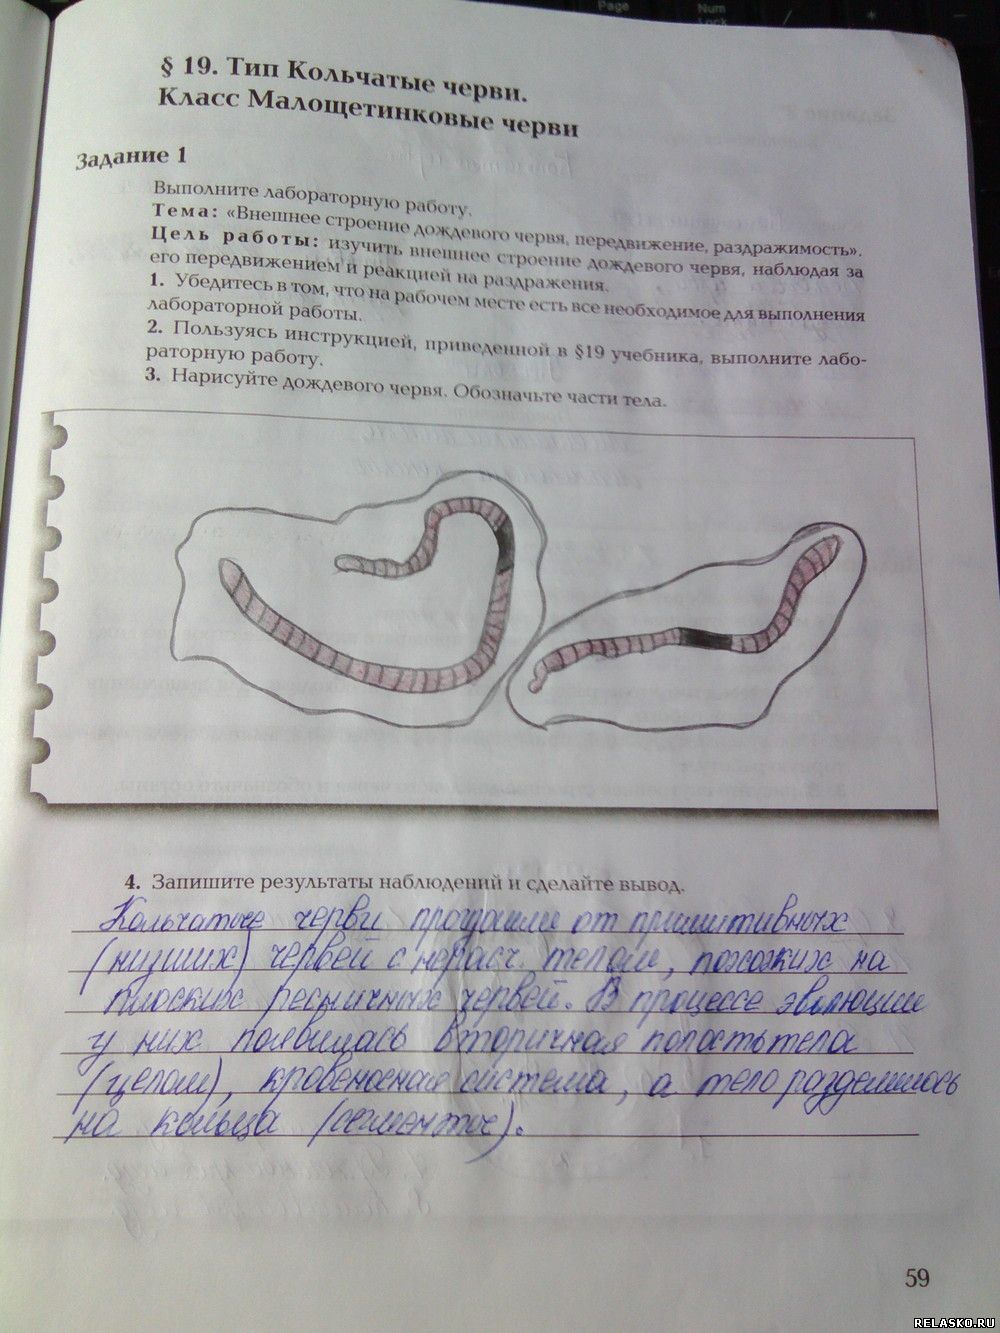 Page
Num
Lock
§ 19. Тип Кольчатые черви.
Класс Малощетинковые черви
Задание 1
Выполните лабораторную работу.
Тема: «Внешнее строение дождевого червя, передвижение, раздражимость».
Цель работы: изучить внешнее строение дождевого червя, наблюдая за
его передвижением и реакцией на раздражения.
1. Убедитесь в том, что на рабочем месте есть все необходимое для выполнения
лабораторной работы.
2. Пользуясь инструкцией, приведенной в §19 учебника, выполните лабо-
раторную работу.
3. Нарисуйте дождевого червя. Обозначьте части тела.
4. Запишите результаты наблюдений и сделайте вывод.
Кольчатые черви произошли от примитивных
(низших) червей с нерасч. телом, похожих на
плоских ресничных червей. В процессе эволюции
у них появилась вторичная полость тела
(целом), кровеносная система, а тело разделилось
на кольца (сегменты).
59
RELASKO.RU